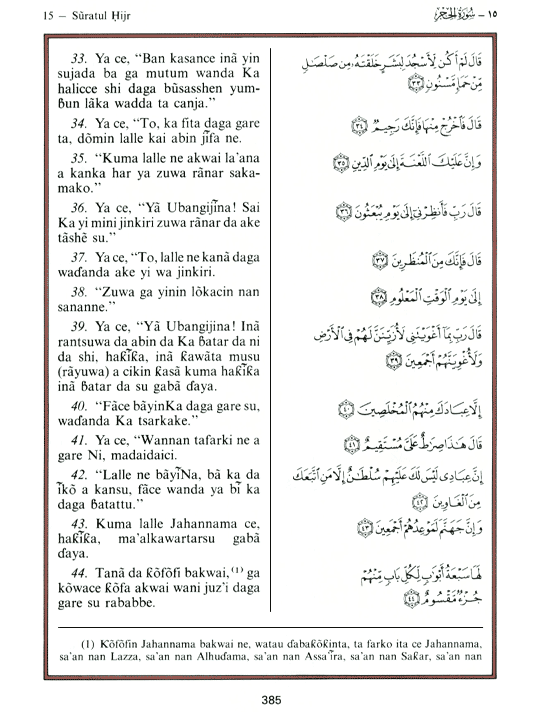 15 — Sūratul Ḥijr
١٥ – سُورَةُ الحِجْر
33. Ya ce, “Ban kasance inã yin
sujada ba ga mutum wanda Ka
halicce shi daga bũsasshen yum-
ɓun lãka wadda ta canja.”
34. Ya ce, “To, ka fita daga gare
ta, dõmin lalle kai abin jĩfa ne.
35. “Kuma lalle ne akwai la'ana
a kanka har ya zuwa rãnar saka-
mako.”
36. Ya ce, “Yã Ubangijĩna! Sai
Ka yi mini jinkiri zuwa rãnar da ake
tãshẽ su.”
37. Ya ce, “To, lalle ne kanã daga
waɗanda ake yi wa jinkiri.
38. “Zuwa ga yinin lõkacin nan
sananne.”
39. Ya ce, “Yã Ubangijina! Inã
rantsuwa da abin da Ka ɓatar da ni
da shi, haƙĩƙa, inã ƙawãta musu
(rãyuwa) a cikin ƙasã kuma haƙĩƙa
inã ɓatar da su gabã ɗaya.
40. “Fãce bãyinKa daga gare su,
waɗanda Ka tsarkake.”
41. Ya ce, “Wannan tafarki ne a
gare Ni, madaidaici.
42. “Lalle ne bãyĩNa, bã ka da
ĩkõ a kansu, fãce wanda ya bĩ ka
daga ɓatattu.”
43. Kuma lalle Jahannama ce,
haƙĩƙa, ma'alkawartarsu gabã
ɗaya.
44. Tanã da ƙõfõfi bakwai,(1) ga
kõwace ƙõfa akwai wani juz'i daga
gare su rababbe.
قَالَ لَمْ أَكُن لِّأَسْجُدَ لِبَشَرٍ خَلَقْتَهُۥ مِن صَلْصَٰلٍ
مِّنْ حَمَإٍ مَّسْنُونٍ ٣٣
قَالَ فَٱخْرُجْ مِنْهَا فَإِنَّكَ رَجِيمٌ ٣٤
وَإِنَّ عَلَيْكَ ٱللَّعْنَةَ إِلَىٰ يَوْمِ ٱلدِّينِ ٣٥
قَالَ رَبِّ فَأَنظِرْنِىٓ إِلَىٰ يَوْمِ يُبْعَثُونَ ٣٦
قَالَ فَإِنَّكَ مِنَ ٱلْمُنظَرِينَ ٣٧
إِلَىٰ يَوْمِ ٱلْوَقْتِ ٱلْمَعْلُومِ ٣٨
قَالَ رَبِّ بِمَآ أَغْوَيْتَنِى لَأُزَيِّنَنَّ لَهُمْ فِى ٱلْأَرْضِ
وَلَأُغْوِيَنَّهُمْ أَجْمَعِينَ ٣٩
إِلَّا عِبَادَكَ مِنْهُمُ ٱلْمُخْلَصِينَ ٤٠
قَالَ هَٰذَا صِرَٰطٌ عَلَىَّ مُسْتَقِيمٌ ٤١
إِنَّ عِبَادِى لَيْسَ لَكَ عَلَيْهِمْ سُلْطَٰنٌ إِلَّا مَنِ ٱتَّبَعَكَ
مِنَ ٱلْغَاوِينَ ٤٢
وَإِنَّ جَهَنَّمَ لَمَوْعِدُهُمْ أَجْمَعِينَ ٤٣
لَهَا سَبْعَةُ أَبْوَٰبٍ لِّكُلِّ بَابٍ مِّنْهُمْ
جُزْءٌ مَّقْسُومٌ ٤٤
(1) Kõfõfin Jahannama bakwai ne, watau ɗabaƙõƙinta, ta farko ita ce Jahannama,
sa'an nan Lazza, sa'an nan Alhuɗama, sa'an nan Assa'ĩra, sa'an nan Saƙar, sa'an nan
385